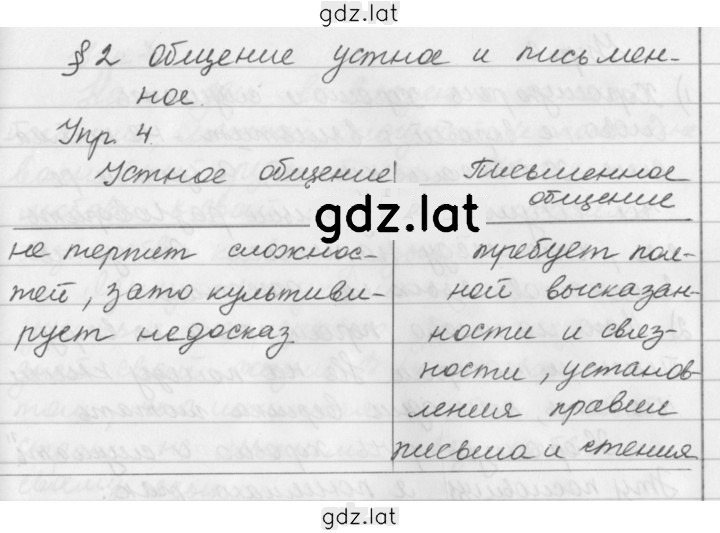 gdz.lat
§2 Общение устное и письмен-
ное.
Упр. 4.
Устное общение
Письменное
общение
gdz.lat
не терпит сложнос-
тей, зато культиви-
рует недосказ.
требует пол-
ной высказан-
ности и связ-
ности, установ-
ления правил
письма и чтения
gdz.lat